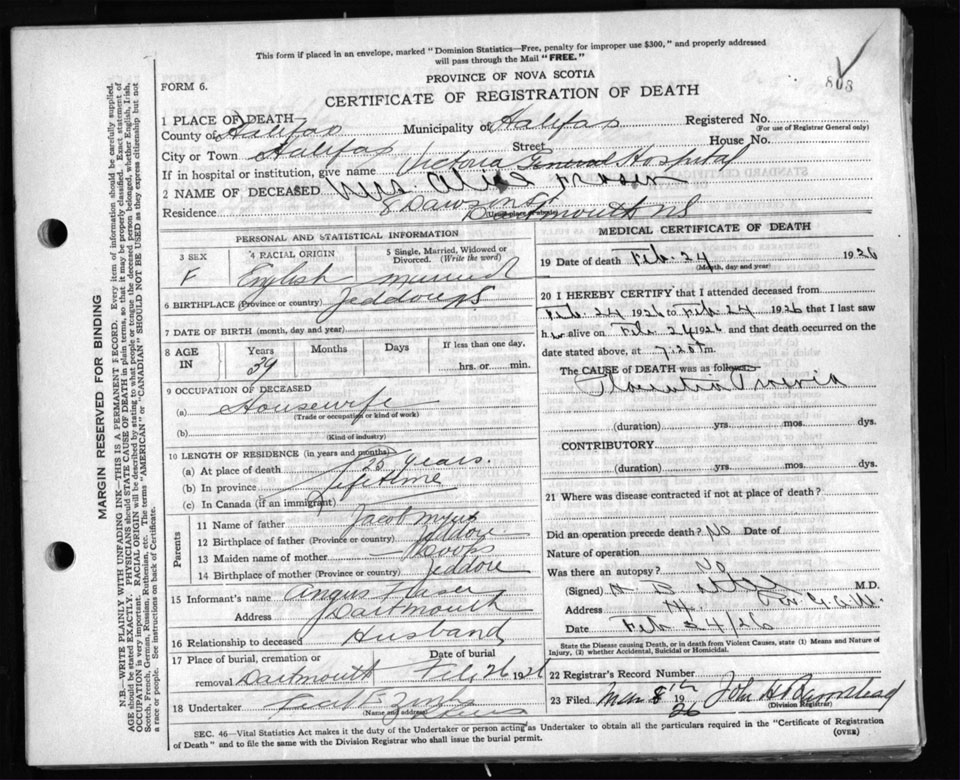 This form if placed in an envelope, marked "Dominion Statistics—Free, penalty for improper use $300," and properly addressed
will pass through the Mail "FREE."
803
PROVINCE OF NOVA SCOTIA
FORM 6.
CERTIFICATE OF REGISTRATION OF DEATH
1 PLACE OF DEATH
County of Halifax Municipality of Halifax Registered No.
(For use of Registrar General only)
City or Town Halifax Street House No.
If in hospital or institution, give name Victoria General Hospital
2 NAME OF DECEASED Mrs. Alice Fraser
Residence 8 Dawson St
Dartmouth NS
PERSONAL AND STATISTICAL INFORMATION
3 SEX 4 RACIAL ORIGIN 5 Single, Married, Widowed or Divorced. (Write the word)
F English married
6 BIRTHPLACE (Province or country) Jeddore NS
7 DATE OF BIRTH (month, day and year)
8 AGE IN Years Months Days If less than one day,
39 hrs. or min.
9 OCCUPATION OF DECEASED
(a) Housewife
(Trade or occupation or kind of work)
(b)
(Kind of industry)
10 LENGTH OF RESIDENCE (in years and months)
(a) At place of death 25 years.
(b) In province lifetime
(c) In Canada (if an immigrant)
Parents
11 Name of father Jacob
12 Birthplace of father (Province or country) Jeddore
13 Maiden name of mother
14 Birthplace of mother (Province or country) Jeddore
15 Informant's name Angus Fraser
Address Dartmouth
16 Relationship to deceased Husband
17 Place of burial, cremation or removal Dartmouth Date of burial Feb 26 1926
18 Undertaker
(Name and address)
MEDICAL CERTIFICATE OF DEATH
19 Date of death Feb. 24 1926
(Month, day and year)
20 I HEREBY CERTIFY that I attended deceased from
Feb. 24 1926 to Feb. 24 1926 that I last saw
her alive on Feb 24 1926 and that death occurred on the
date stated above, at 7:20 m
The CAUSE of DEATH was as follows
Placentia Praevia
(duration) yrs. mos. dys.
CONTRIBUTORY.
(duration) yrs. mos. dys.
21 Where was disease contracted if not at place of death?
Did an operation precede death? No Date of
Nature of operation
Was there an autopsy? no
(Signed) M.D.
Address
Date Feb 24/26
State the Disease causing Death, or in death from Violent Causes, state (1) Means and Nature of Injury, (2) whether Accidental, Suicidal or Homicidal.
22 Registrar's Record Number
23 Filed Mar 8th 1926 John H
(Division Registrar)
SEC. 46—Vital Statistics Act makes it the duty of the Undertaker or person acting as Undertaker to obtain all the particulars required in the "Certificate of Registration
of Death" and to file the same with the Division Registrar who shall issue the burial permit. (OVER)
MARGIN RESERVED FOR BINDING
N.B.—WRITE PLAINLY WITH UNFADING INK—THIS IS A PERMANENT RECORD. Every item of information should be carefully supplied.
AGE should be stated EXACTLY. PHYSICIANS should STATE CAUSE OF DEATH in plain terms, so that it may be properly classified. Exact statement of
OCCUPATION is very important. RACIAL ORIGIN will be described by stating to what people or tongue the deceased person belonged, whether English, Irish,
Scotch, French, German, Russian, Ruthenian, etc. The terms "AMERICAN" or "CANADIAN" SHOULD NOT BE USED as they express citizenship but not
a race or people. See instructions on back of Certificate.